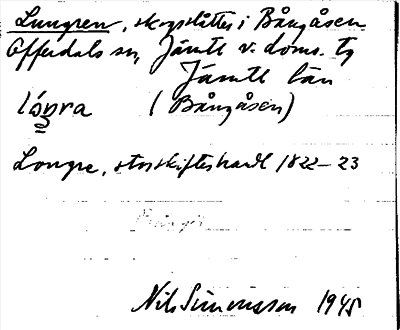 Lungren, skogsslåtter i Bångåsen
Offerdals sn, Jämtl v. doms. tg
Jämtl län
(Bångåsen)
Longre, storskifteskarl 1822–23
Nils Simonsson 1945